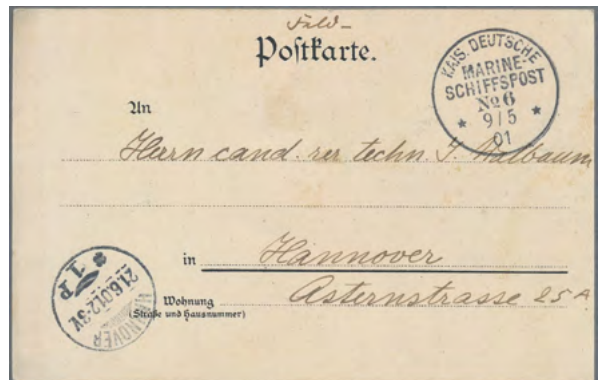 Feld-
Postkarte.
KAIS. DEUTSCHE
MARINE-
SCHIFFSPOST
No 6
* 9/5 *
01
An
Herrn cand. rer. techn. J. Walbaum
in Hannover
Wohnung Asternstrasse 25A
(Straße und Hausnummer)
HANNOVER
21.6.01.2-3V.
* 1 P